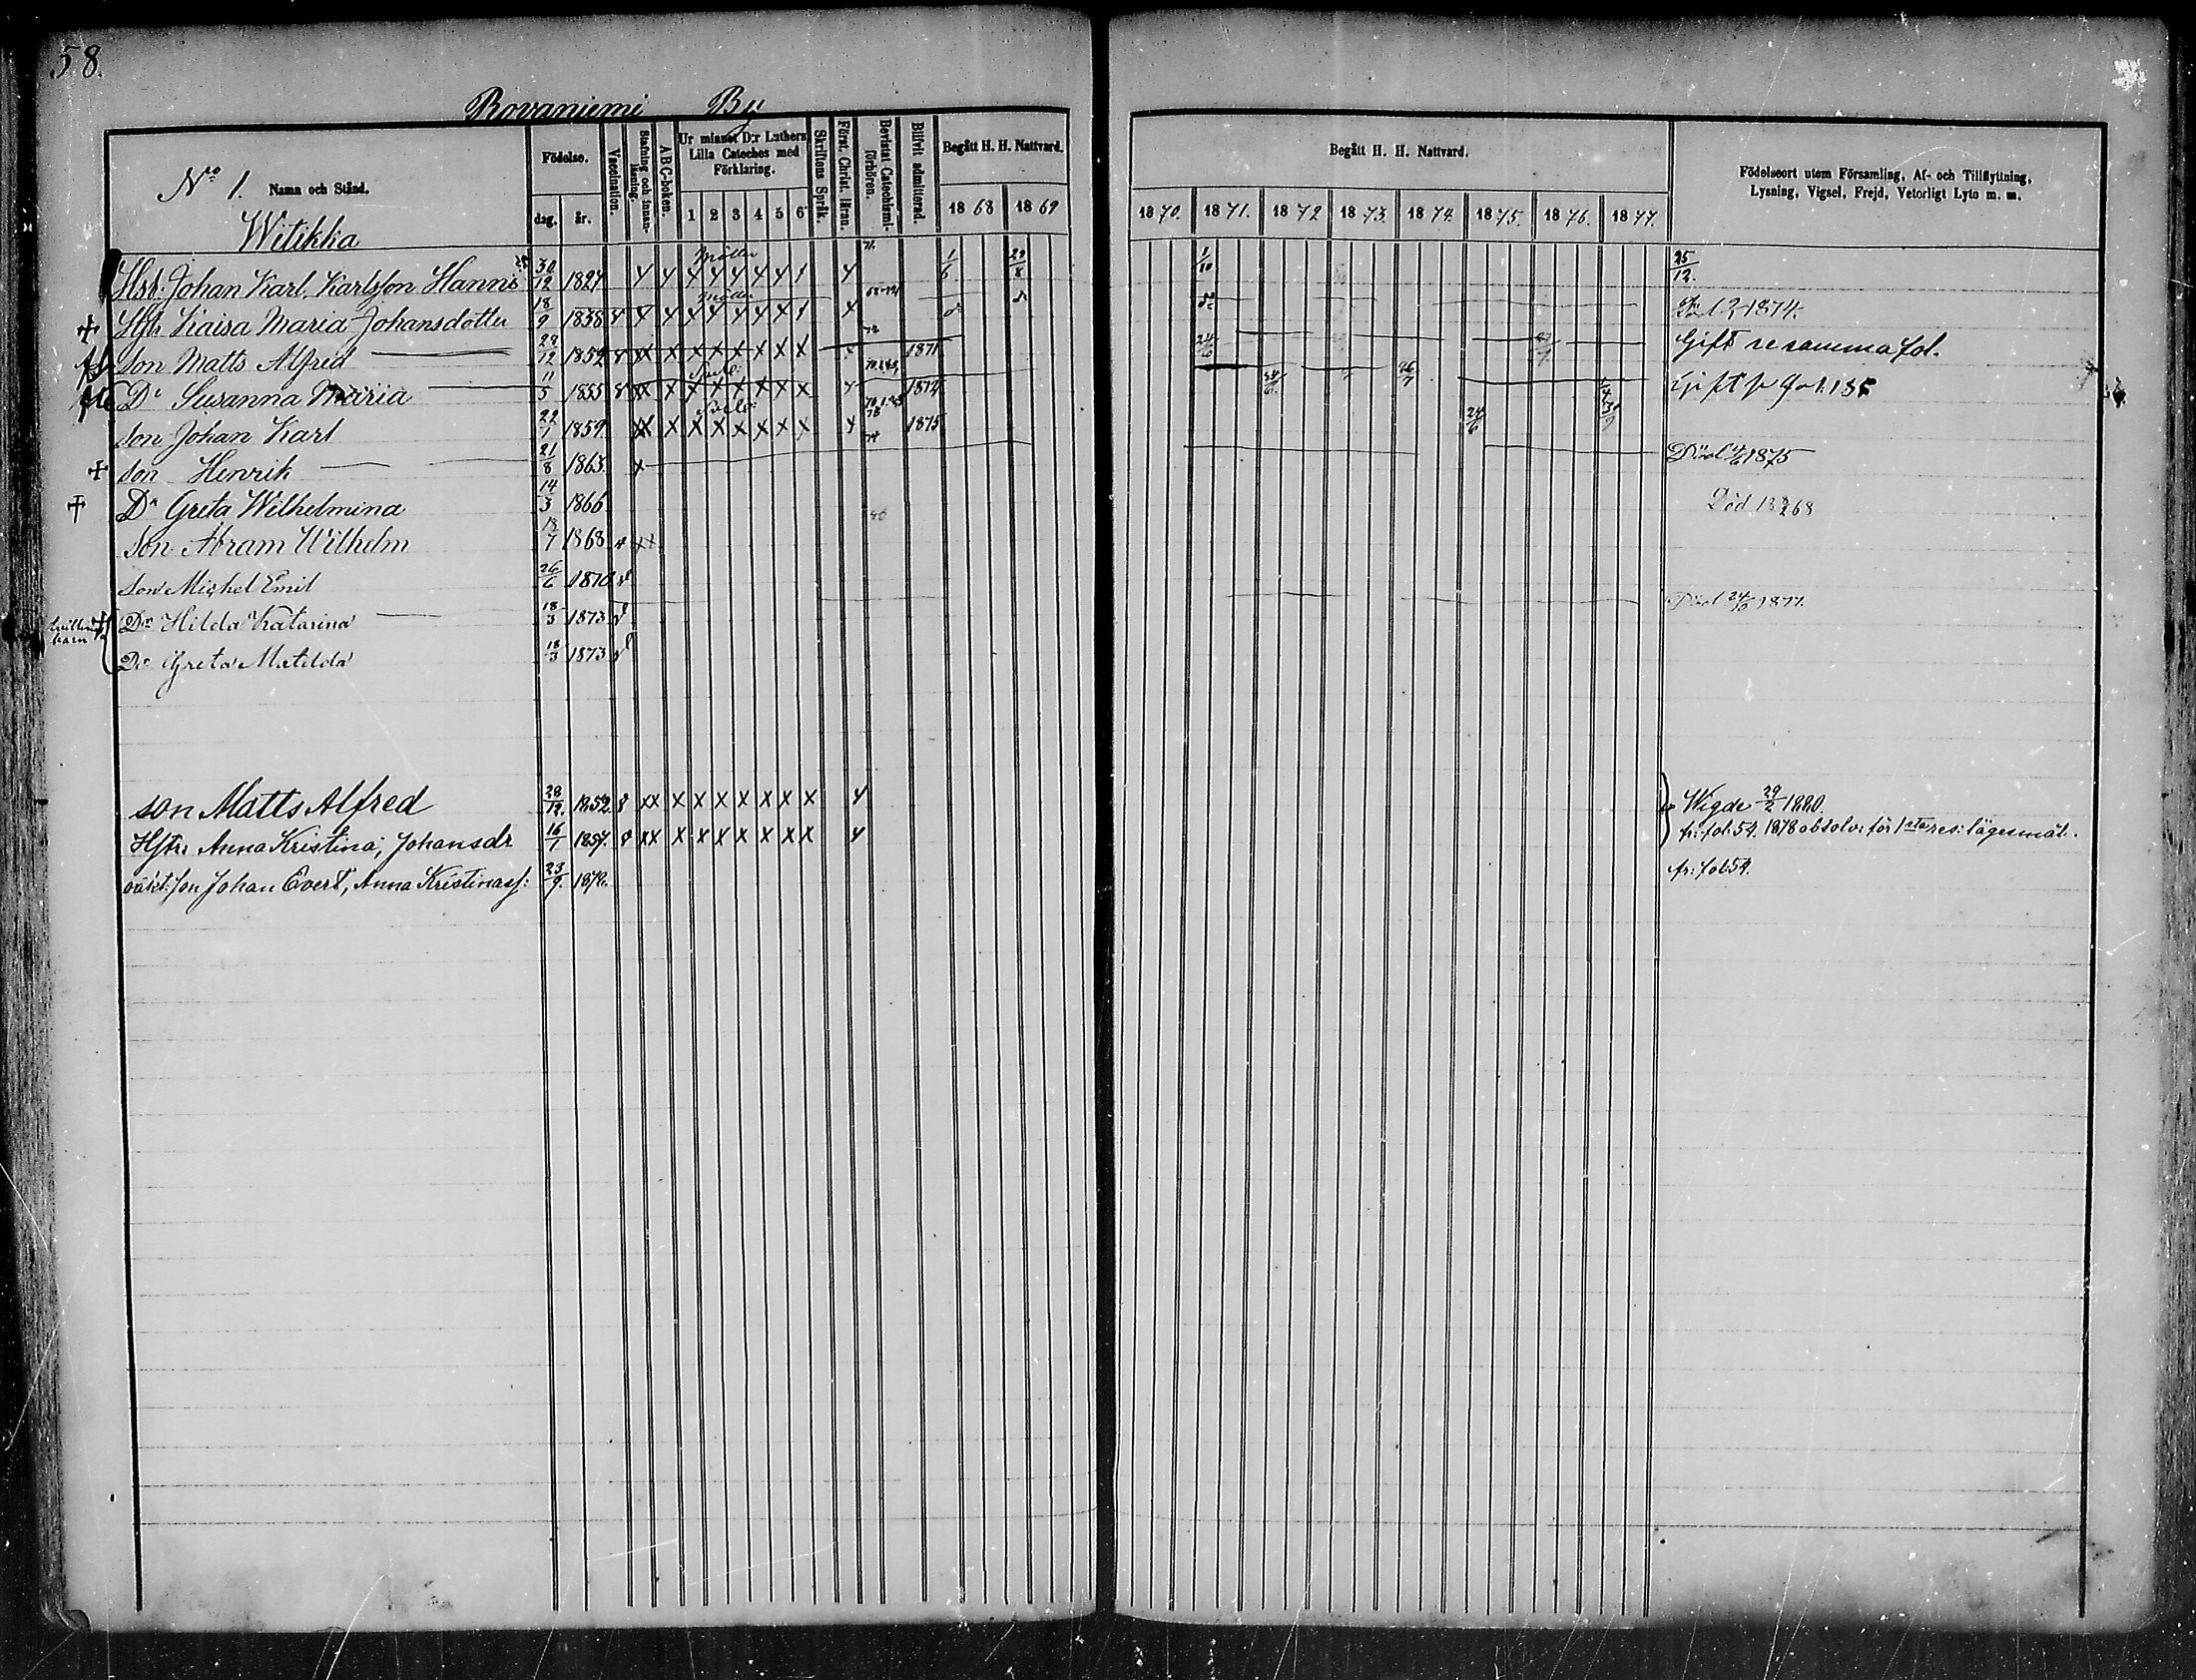 58.
Rovaniemi By
No 1. Namn och Stånd.
Födelse.
dag. år.
Vaccination.
Stafning och innan-läsning.
A B C-boken.
Ur minnet D:r Luthers Lilla Cateches med Förklaring.
1 2 3 4 5 6
Skriftens Språk.
Först. Christ. läran.
Bevistat Catechismi-förhören.
Blifvit admitterad.
Begått H. H. Nattvard.
1868 1869
Begått H. H. Nattvard.
1870. 1871. 1872 1873. 1874. 1875. 1876. 1877.
Födelseort utom Församling, Af- och Tillflyttning,
Lysning, Vigsel, Frejd, Vetorligt Lyto m. m.
Witikka
Hsb. Johan Karl. Karlsson Hannis 30/12 1827 1/6 29/8 1/10 25/12.
Hh Kaisa Maria Johansdotter 18/9 1838 1874.
Son Matts Alfred 28/12 1852 1871 24/6 Gift se samma fol.
Dr Susanna Maria 11/5 1855 1872 Gift fol. 135
Son Johan Karl 22/1 1859 1875 24/6
son Henrik 21/8 1863 Död 1875
Dr Greta Wilhelmina 14/3 1866 Död 68
Son Abram Wilhelm 18/7 1868
Son Michel Emil 26/6 1870
Dr Hilda Katarina 18/3 1873 Död 24/10 1877.
Dr Greta Matilda 18/3 1873
son Matts Alfred 28/12. 1852 Wigde 29/2 1880.
Hstr: Anna Kristina, Johansdr 16/1 1857. fr: fol. 54. 1878 absolv: för 1sta res: lägersmål.
oäkt: son Johan Evert, Anna Kristinas s: 23/9. 1878. fr: fol 54.